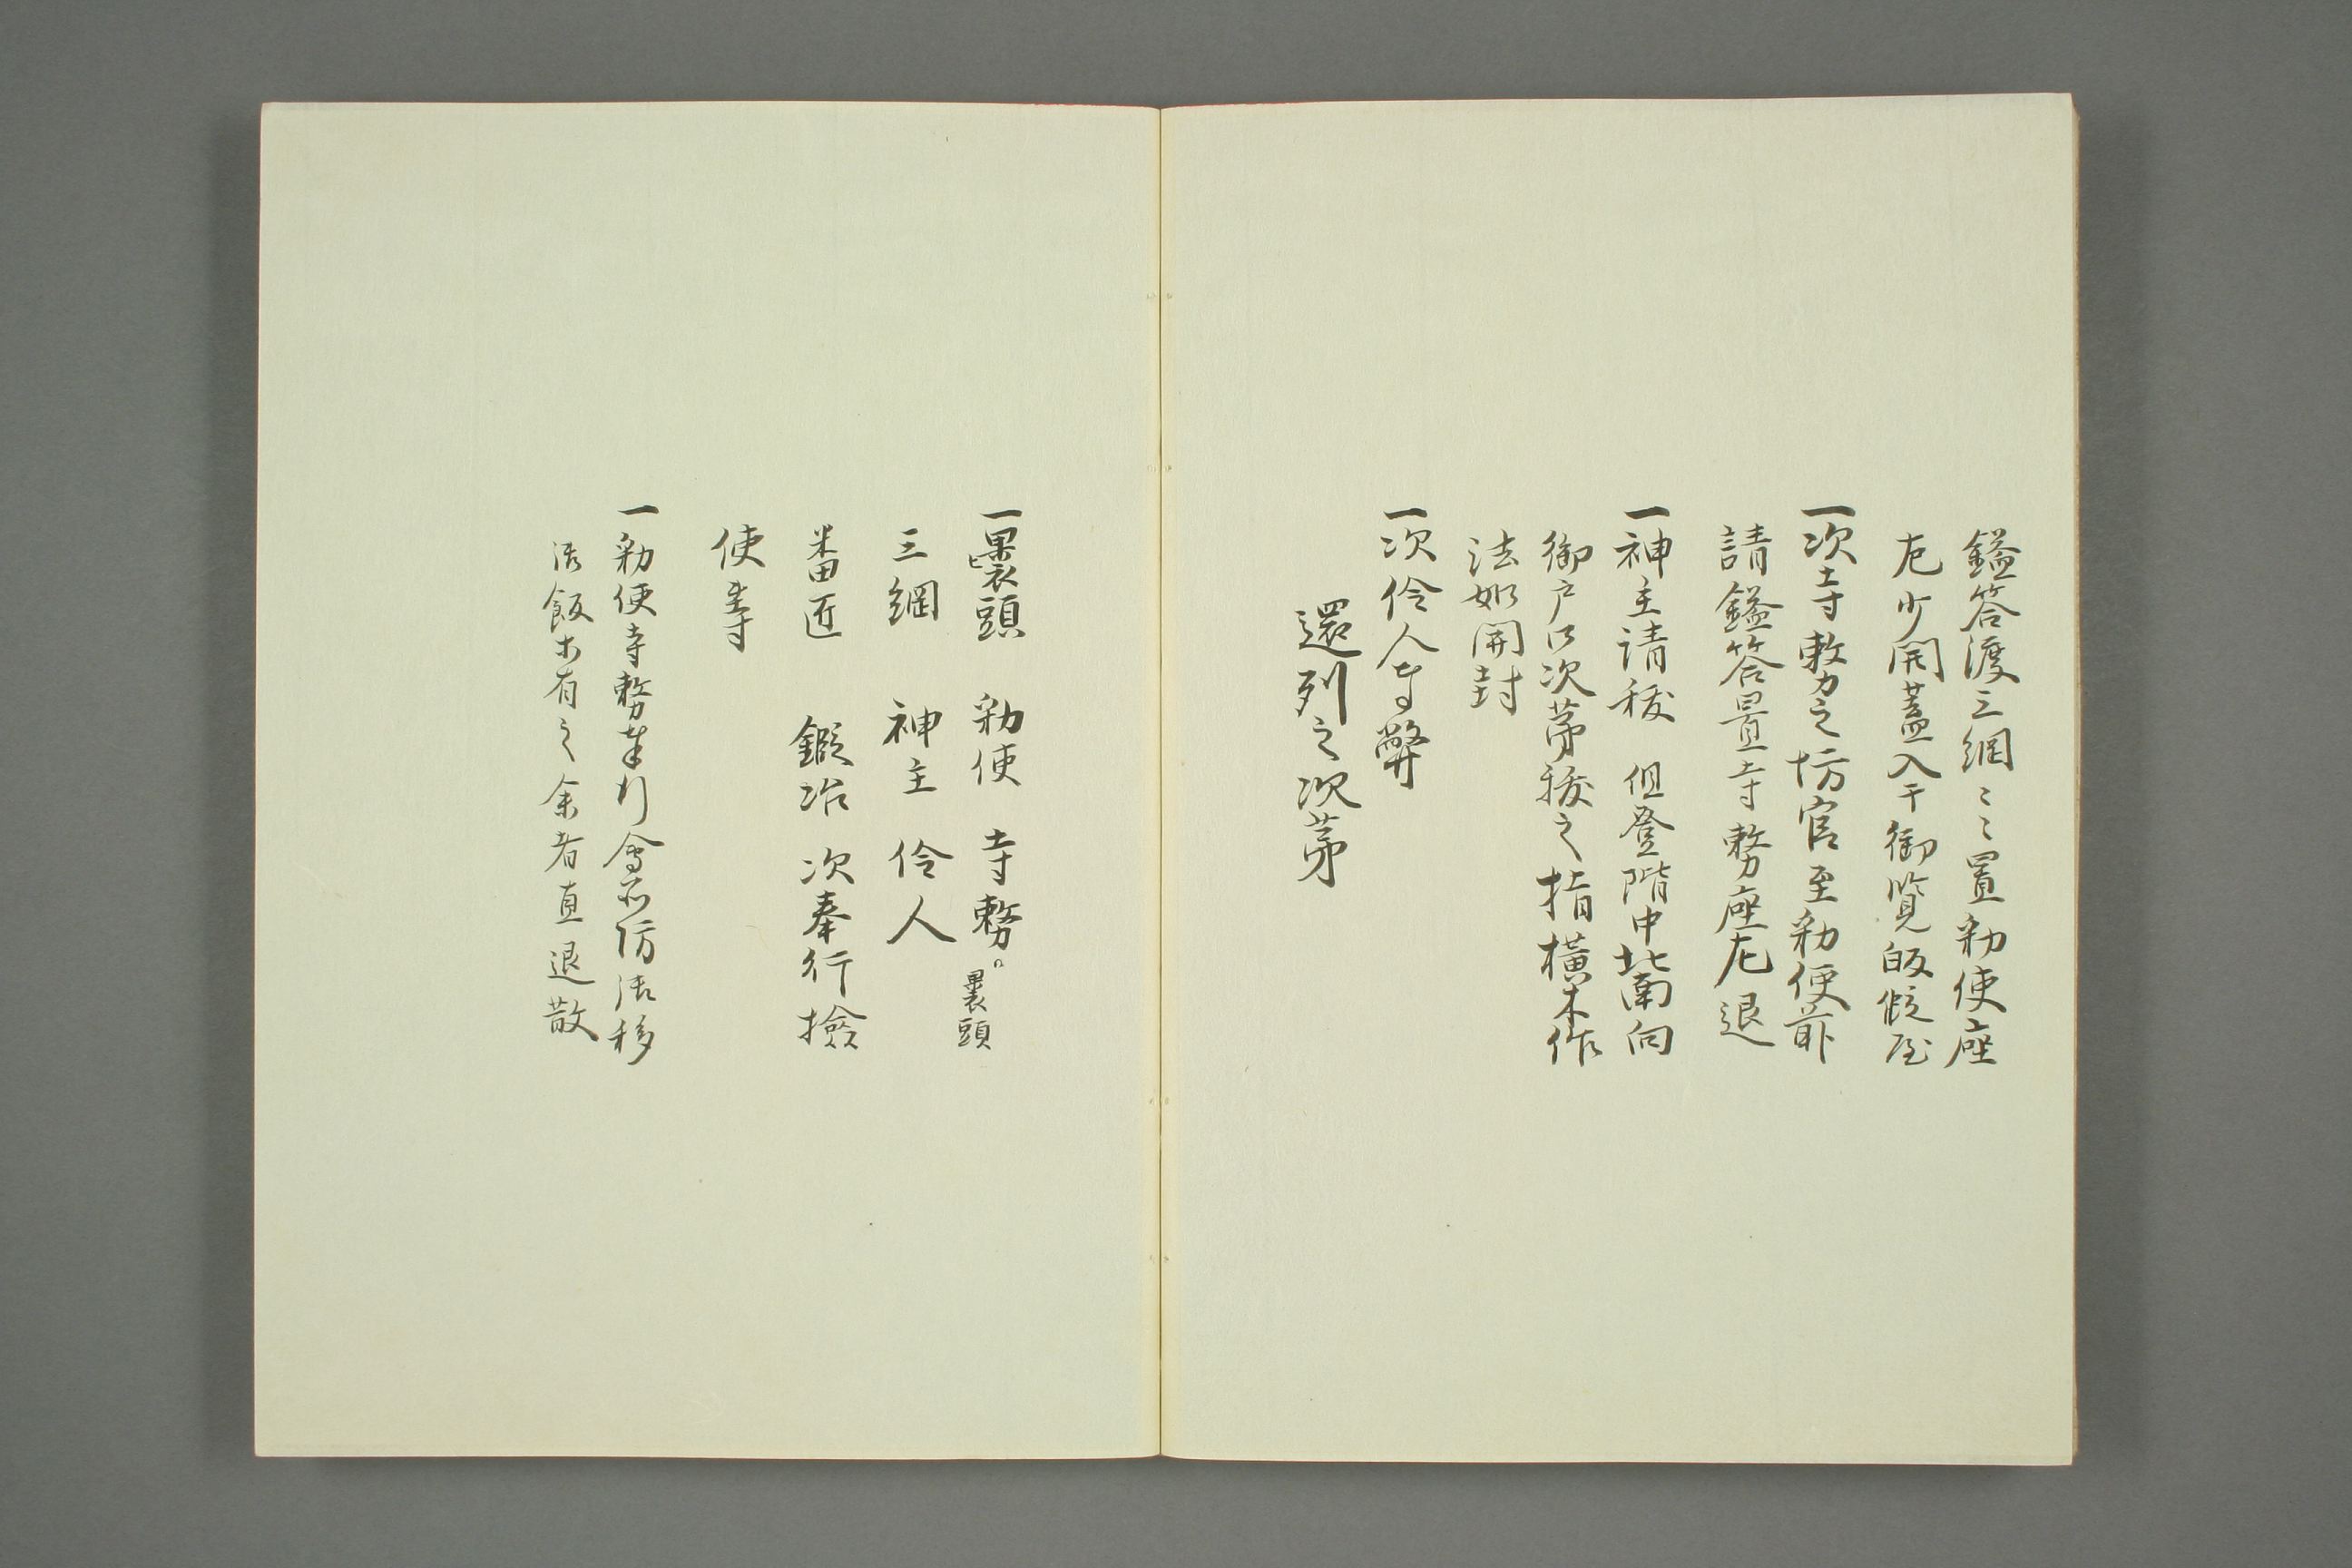 鎰筥渡三綱〻〻置勅使座
左少開蓋入于御覧皈假屋
一次寺務之坊官至勅使前
請鎰筥置寺務座左退
一神主請祓　但登階中北南向
御戸口次第祓之指横木作
法如開封
一次伶人等幣
還列之次第
一裹頭　勅使　寺務。裹頭
三綱　神主　伶人
番匠　鍛冶　次奉行撿
使等
一勅使寺務奉行會所坊
飯木有之余者直退散